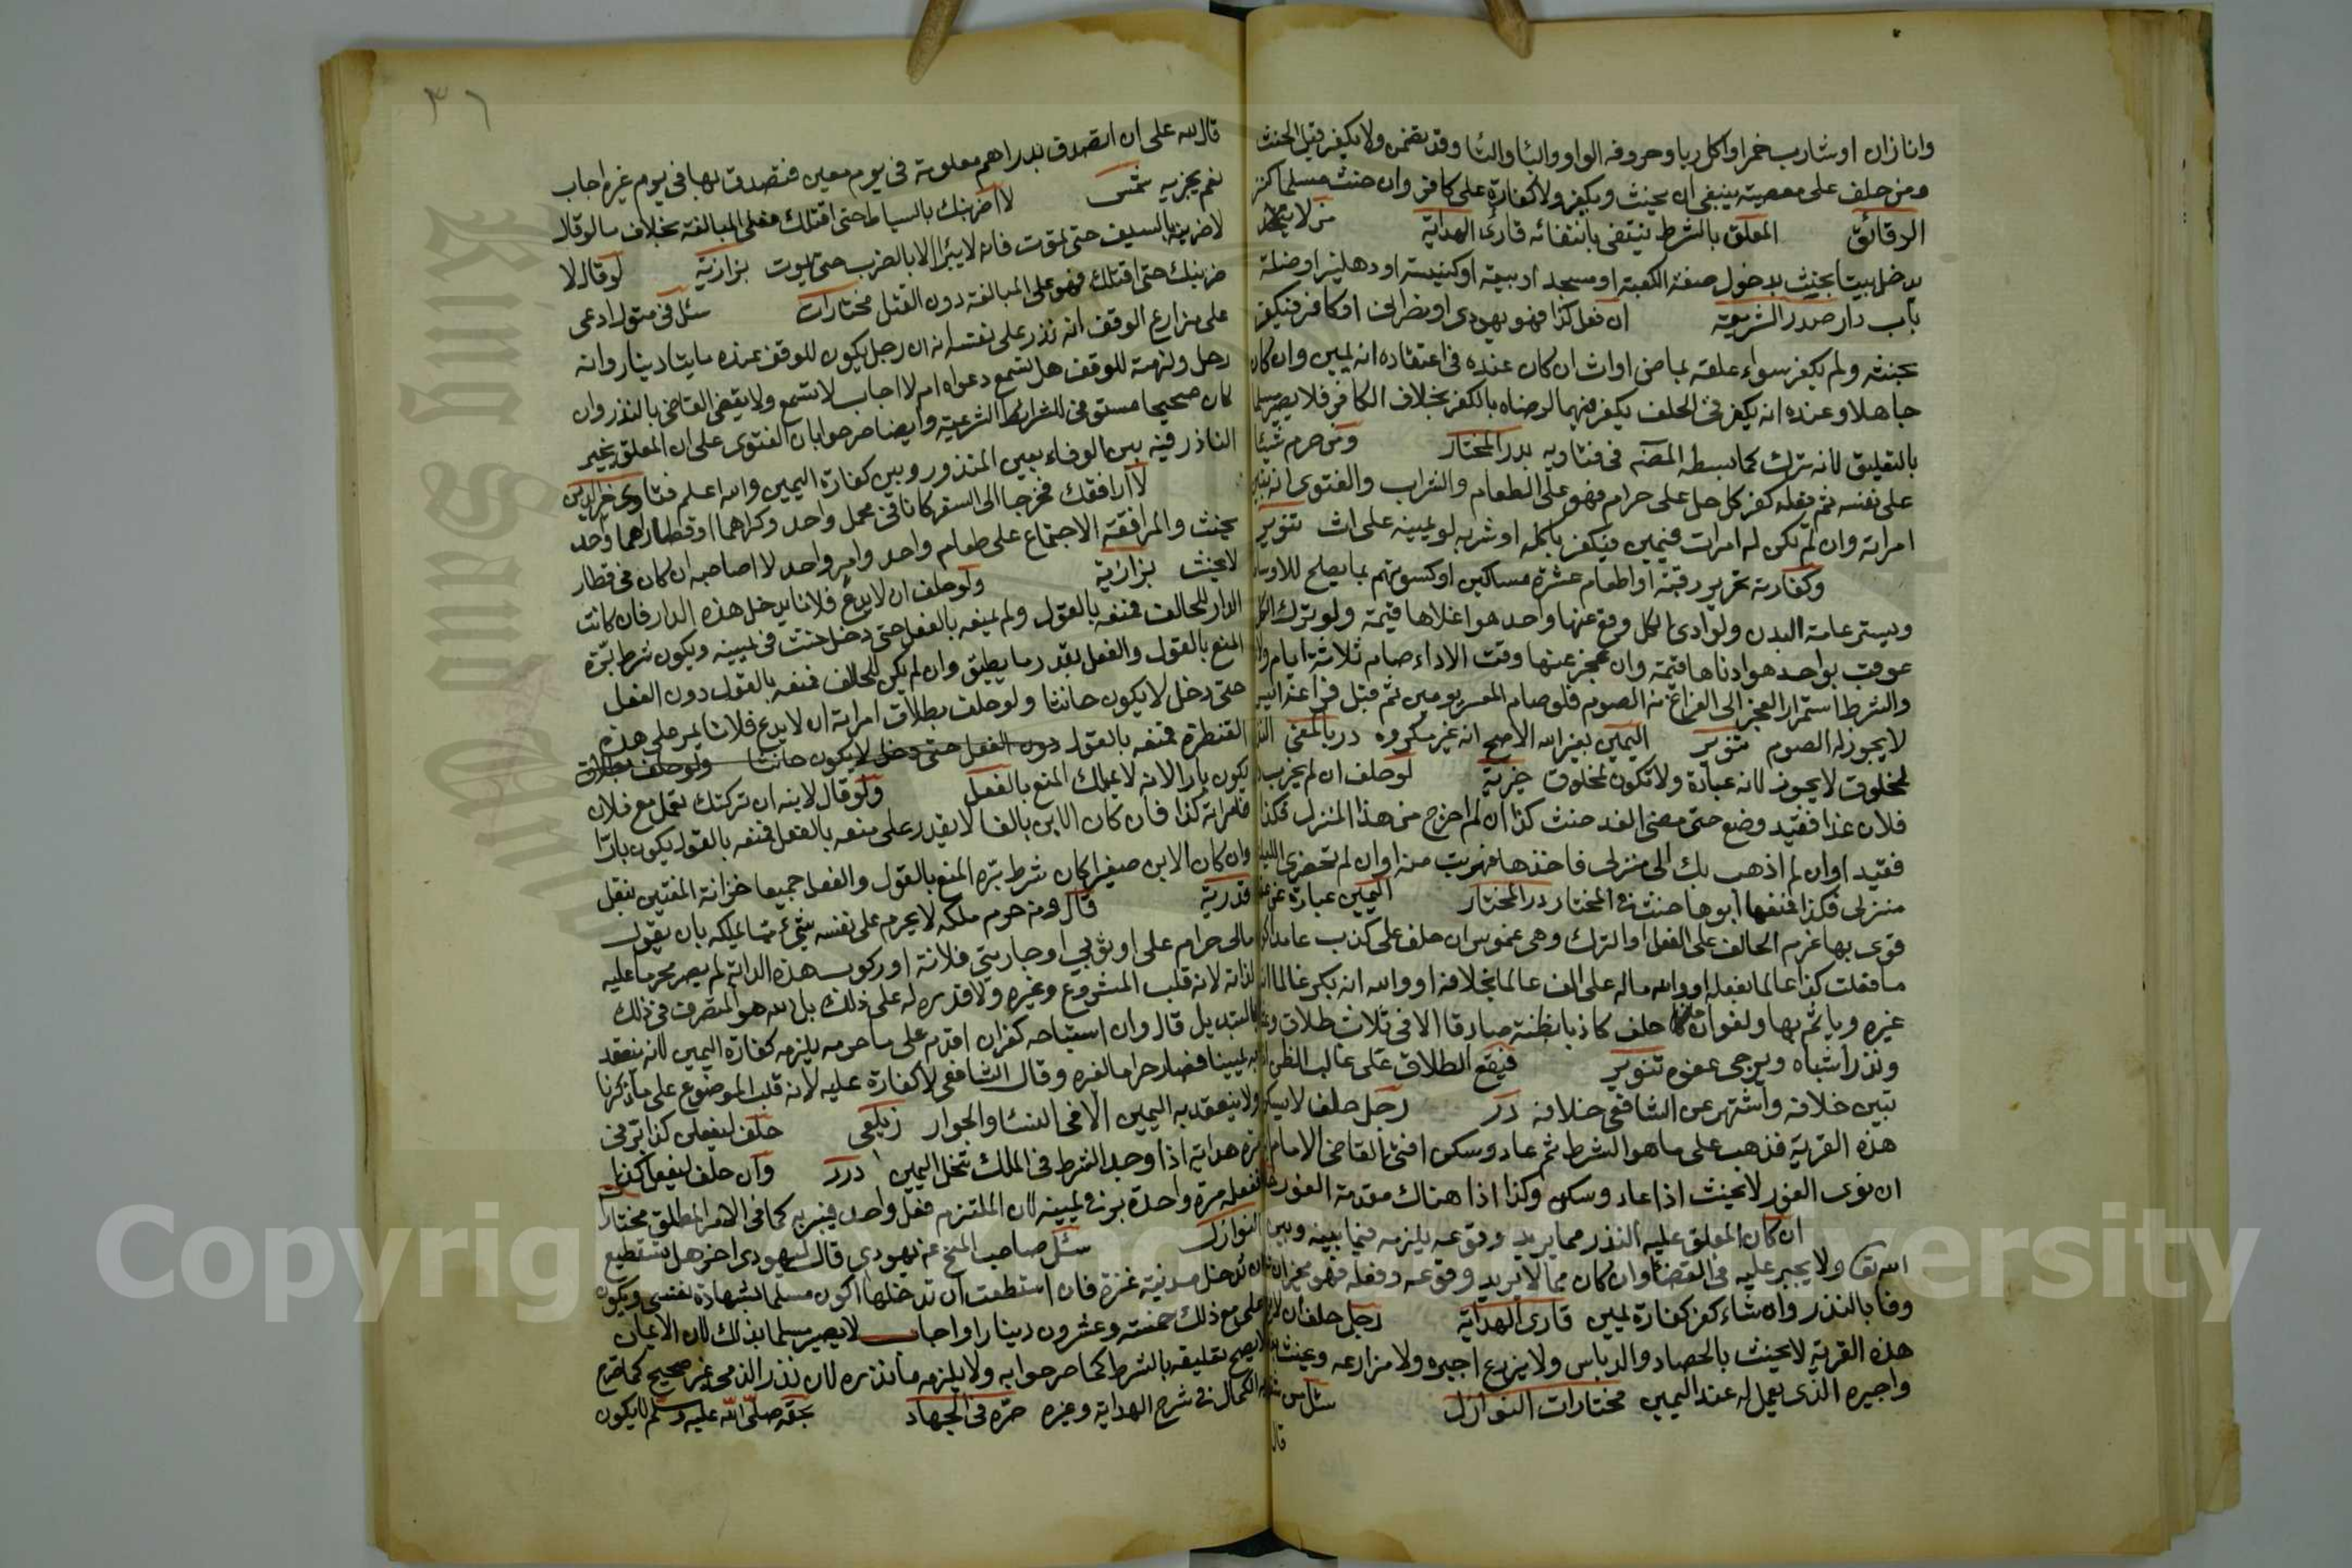 وانا زان او شارب خمر او اكل ربا وحروفه الواو والبا والتا وقد تضمر ولا يكفر قبل الحنث
ومن حلف على معصية ينبغي ان يحنث ويكفر ولا كفارة على كافر وان حنث مسلما كنز
الدقائق المعلق بالشرط ينتفى بانتفائه قارئ الهداية من لا يدخل
يدخل بيتا يحنث بدخول صفة الكعبة او مسجد او بيعة او كنيسة او دهليز او ظلة
باب دار صدر الشريعة ان فعل كذا فهو يهودى او نصرانى او كافر فيكفر
بحنثه ولم يكفر سواء علقه بماض او ات ان كان عنده فى اعتقاده انه يمين وان كان
جاهلا وعنده انه يكفر فى الحلف يكفر فيهما لرضاه بالكفر بخلاف الكافر فلا يصير مسلما
بالتعليق لانه ترك كما بسطه المصنف فى فتاويه بدر المختار ومن حرم شيئا
على نفسه ثم فعله كفر كل حل على حرام فهو على الطعام والشراب والفتوى انه تبين
امراته وان لم تكن له امرات فيمين فيكفر باكله او شربه لو يمينه على ات تنوير
وكفارته تحرير رقبة او اطعام عشرة مساكين او كسوتهم بما يصلح للاوساط
ويستر عامة البدن ولو ادى الكل وقع عنها واحد هو اعلاها قيمة ولو ترك الكل
عوقب بواحد هو ادناها قيمة وان عجز عنها وقت الاداء صام ثلاثة ايام ولاء
والشرط استمرار العجز الى الفراغ من الصوم فلو صام المعسر يومين ثم قبل فراغه ايسر
لا يجوز له الصوم تنوير اليمين بغير الله الاصح انه غير مكروه در بالمعنى النذر
لمخلوق لا يجوز لانه عبادة ولا تكون لمخلوق خيرية لو حلف ان لم يخرب
فلان غدا فقيد وضع حتى مضى الغد حنث كذا ان لم اخرج من هذا المنزل فكذا
فقيد او ان لم اذهب بك الى منزلى فاخذها فهربت منه او ان لم تحضرى الليلة
منزلى فكذا فمنعها ابوها حنث فى المختار در المختار اليمين عبارة عن عقد
قوى بها عزم الحالف على الفعل او الترك وهى غموس ان حلف على كذب عامدا كو
ما فعلت كذا عالما بفعله او والله ماله على الف عالما بخلافه او والله انه بكر عالما انه
غيره وياثم بها ولغو ان حلف كاذبا بظنه صادقا الا فى ثلاث طلاق وعتاق
ونذر اشباه ويرجى عفوه تنوير فيقع الطلاق على غالب الظن اذا
تبين خلافه واشتهر عن الشافعى خلافه در رجل حلف لا يسكن
هذه القرية فذهب على ما هو الشرط ثم عاد وسكن افتى القاضى الامام
ان نوى الفور لا يحنث اذا عاد وسكن وكذا اذا هناك مقدمة الفور
ان كان المعلق عليه النذر مما يريد وقوعه يلزمه فيما بينه وبين
الله تعا ولا يجبر عليه فى القضا وان كان مما لا يريد وقوعه وفعله فهو مخير ان شاء
وفا بالنذر وان شاء كفر كفارة يمين قارى الهداية رجل حلف ان لا يزرع
هذه القرية لا يحنث بالحصاد والدياس ولا يزرع اجيره ولا مزارعه وعنث
واجيره الذى يعمل له عند اليمين مختارات النوازل سئل عن
قال
٣٦
قال لله على ان اتصدق بدراهم معلومة فى يوم معين فتصدق بها فى يوم غيره اجاب
نعم يجزيه شمس لا اضربنك بالسياط حتى اقتلك فعلى المبالغة بخلاف ما لو قال
لاضربنه بالسيف حتى تموت فانه لا يبرا الا بالضرب حتى يموت بزازية لو قال لا
ضربنك حتى اقتلك فهو على المبالغة دون القتل مختارات سئل فى متول ادعى
على مزارع الوقف انه نذر على نفسه انه ان رجل يكون للوقف عنده مايتا دينار وانه
رحل ولزمته للوقف هل تسمع دعواه ام لا اجاب لا تسمع ولا يقضى القاضى بالنذر وان
كان صحيحا مستوفى للشرائط الشرعية وايضا صرحوا بان الفتوى على ان المعلق يخير
الناذر فيه بين الوفاء بعين المنذور وبين كفارة اليمين والله اعلم فتاوى خير الدين
لا ارافقك فخرجا الى السفر كانا فى محمل واحد وكراهما او قطارهما واحد
يحنث والمرافقة الاجتماع على طعام واحد وامر واحد لا اصاحبه ان كان فى قطار
لا يحنث بزازية ولو حلف ان لا يدع فلانا يدخل هذه الدار فان كانت
الدار للحالف فمنعه بالقول ولم يمنعه بالفعل حتى دخل حنث فى يمينه ويكون شرط بره
المنع بالقول والفعل بقدر ما يطيق وان لم يكن للحالف فمنعه بالقول دون الفعل
حتى دخل لا يكون حانثا ولو حلف بطلاق امراته ان لا يدع فلانا يمر على هذه
القنطرة فمنعه بالقول دون الفعل حتى دخل لا يكون حانثا ولو حلف بطلاق
يكون بارا لانه لا يملك المنع بالفعل ولو قال لابنه ان تركتك تعمل مع فلان
فامراته كذا فان كان الابن بالغا لا يقدر على منعه بالفعل فمنعه بالقول يكون بارا
وان كان الابن صغيرا كان شرط بره المنع بالقول والفعل جميعا خزانة المفتين بنقل
قدرية قال ومن حرم ملكه لا يحرم على نفسه شئ مما يملكه بان يقول
مالى حرام على او ثوبي او جاريتي فلانة او ركوب هذه الدابة لم يصر محرما عليه
لذاته لانه قلب المشروع وغيره ولا قدره له على ذلك بل الله هو المتصرف فى ذلك
بالتبديل قال وان استباحه كفر ان اقدم على ما حرمه يلزمه كفارة اليمين لانه ينعقد
به يمينا فصار حراما لغيره وقال الشافعى لا كفارة عليه لانه قلب الموضوع على ما ذكرنا
ولا ينعقد به اليمين الا فى النسا والجوار زيلعى حلف ليفعلن كذا بر فى
مرة هداية اذا وجد الشرط فى الملك تنحل اليمين درر وان حلف ليفعل كذا
ففعله مرة واحدة بر فى يمينه لان الملتزم فعل واحد فيبر به كما فى الامر المطلق مختارات
النوازل سئل صاحب المنح عن يهودي قال ليهودى اخر هل تستطيع
ان تدخل مدينة غزة فان استطعت ان تدخلها اكون مسلما بشهادة نفسى ويكون
على مع ذلك خمسة وعشرون دينارا اجاب لا يصير مسلما بذلك لان الايمان
لا يصح تعليقه بالشرط كما صرحوا به ولا يلزمه ما نذره لان نذر الذمى غير صحيح كما صرح
به الكمال فى شرح الهداية وغيره حره فى الجهاد بحقه صلى الله عليه وسلم لا يكون
Copyright © King Saud University